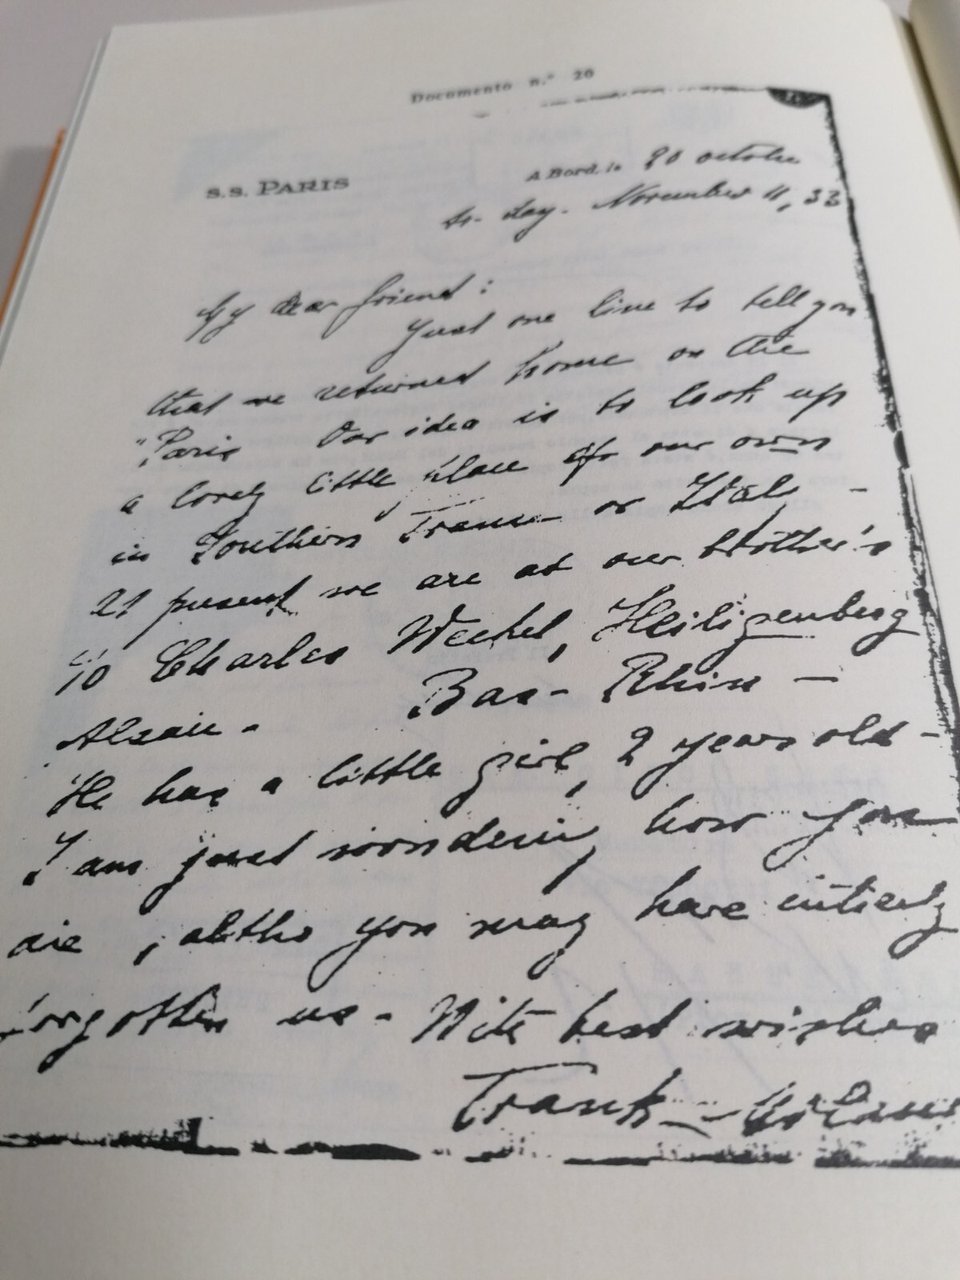 Documento n.º 20
S.S. PARIS
A Bord, le 20 octobre
to-day - November 11, 33
My dear friend:
Just one line to tell you
that we returned home on the
"Paris Our idea is to look up
a lovely little place of our own
in Southern France or Italy -
At present we are at our brother's
c/o Charles Weckel, Heiligenberg
Alsace - Bas-Rhin -
He has a little girl, 2 years old -
I am just wondering how you
are, altho you may have entirely
forgotten us - With best wishes
Frank